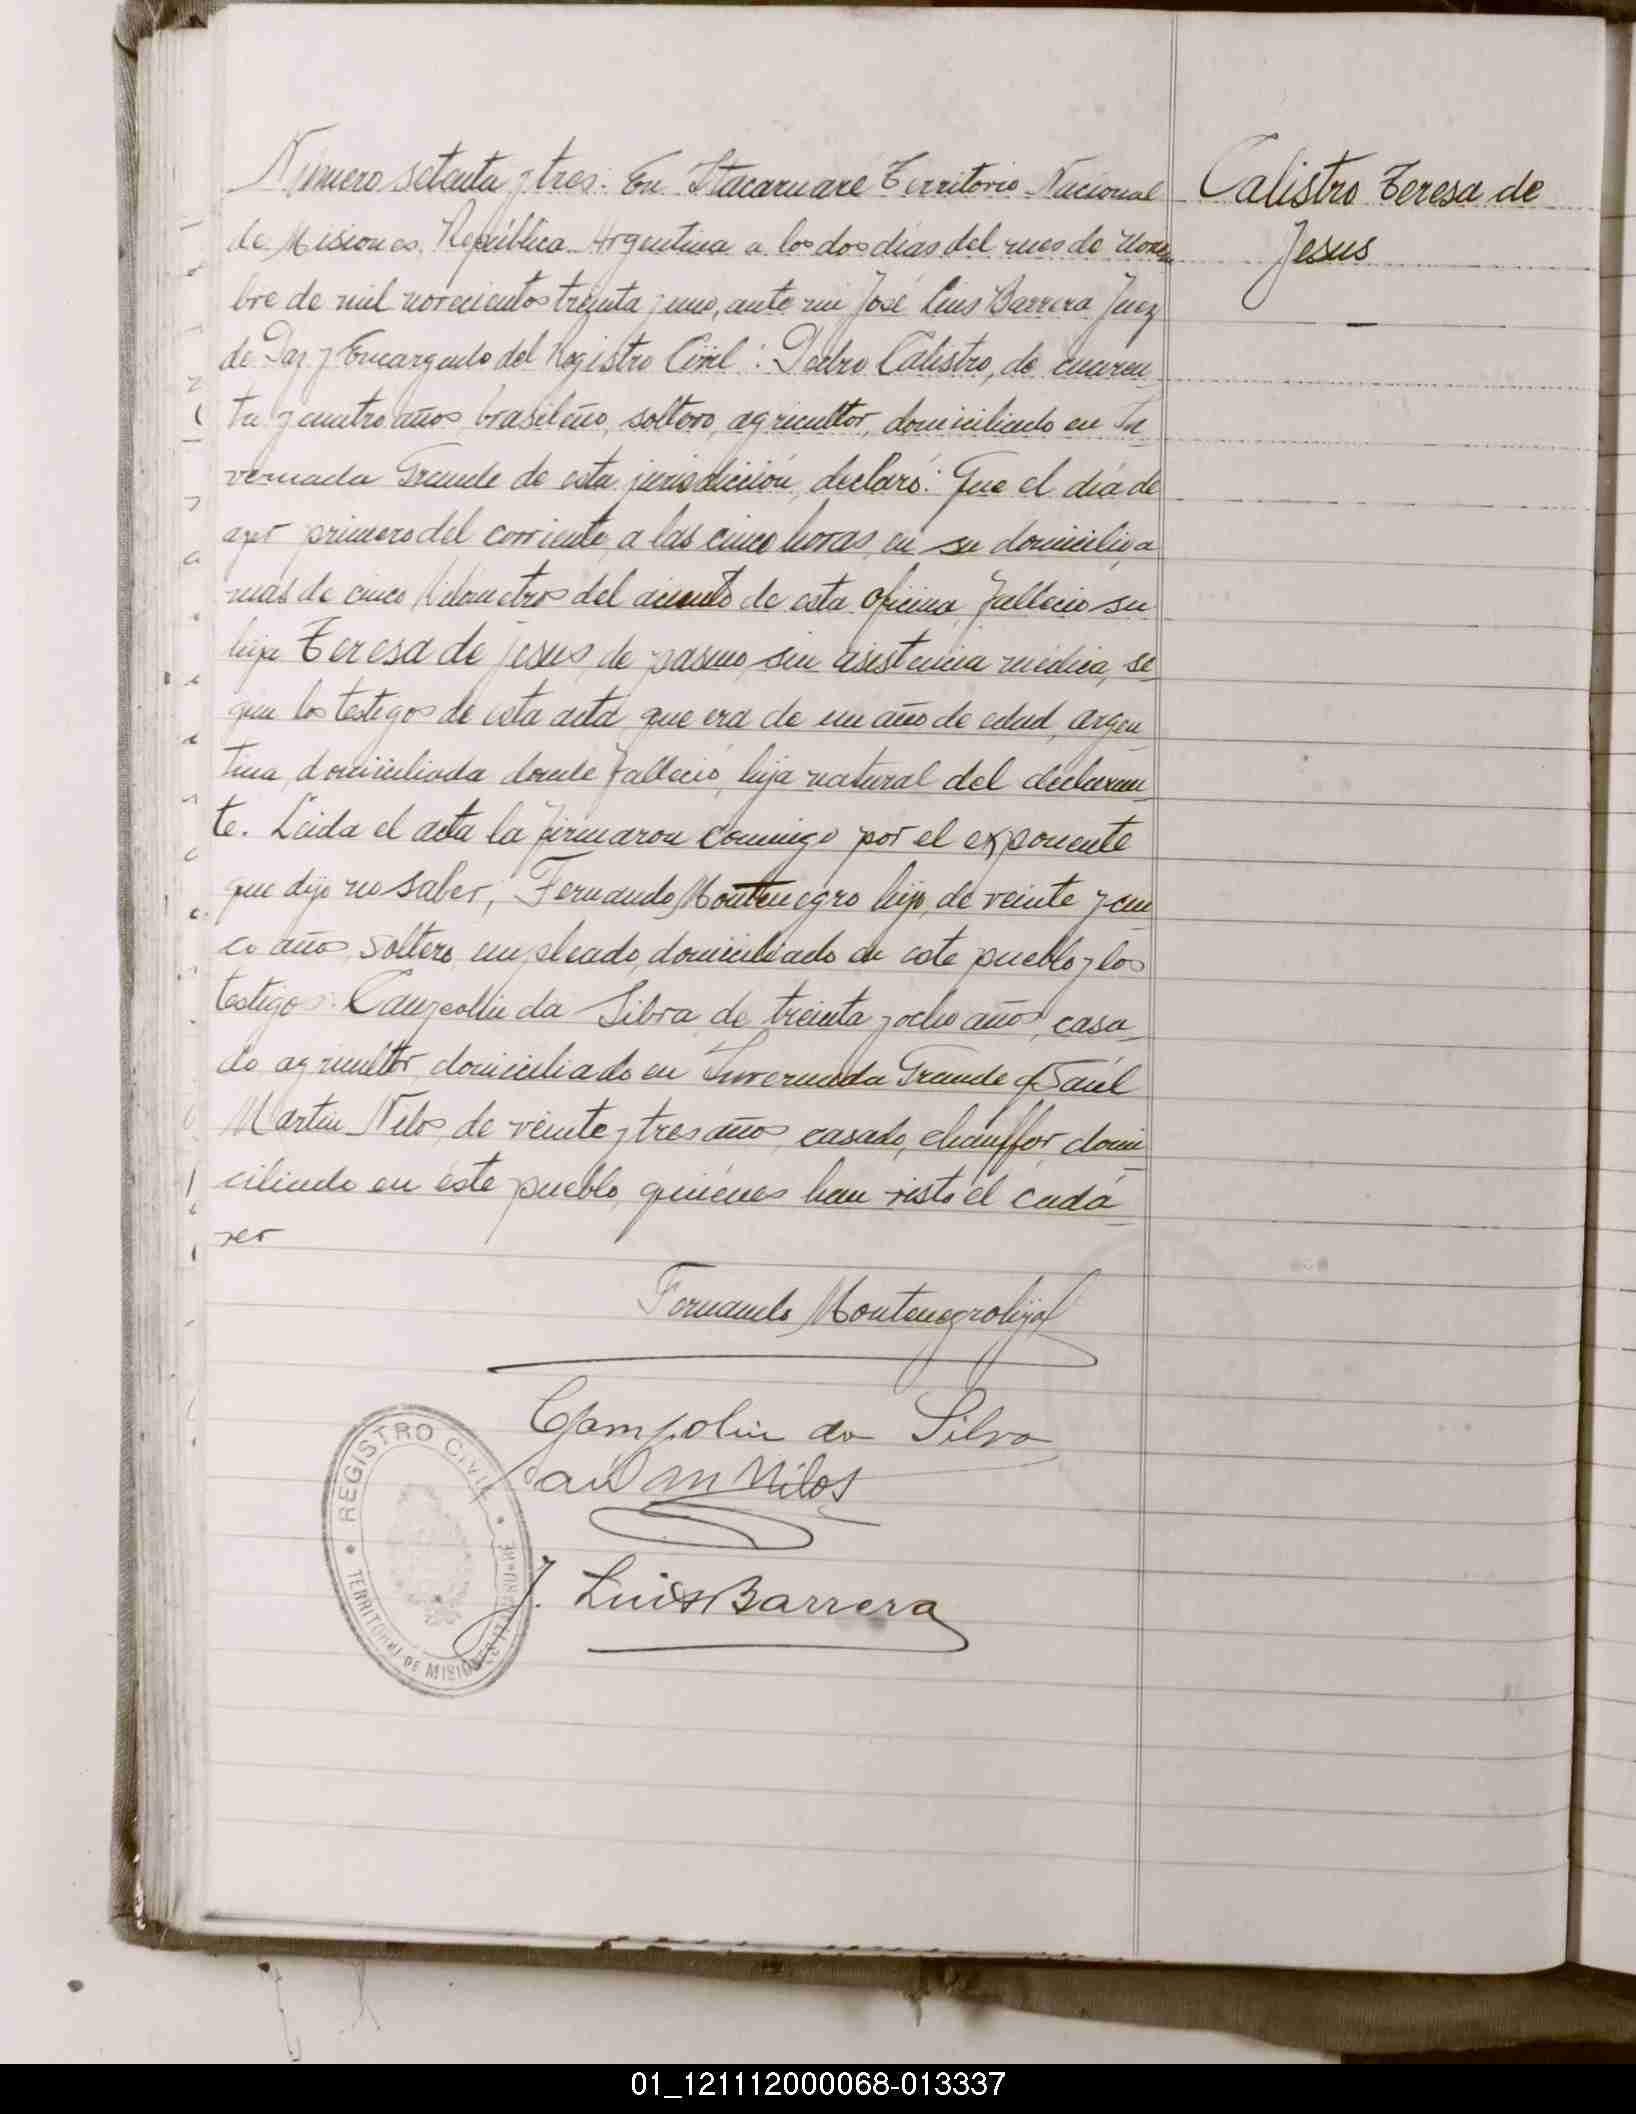 Número setenta y tres: En Itacaruaré Territorio Nacional
de Misiones, República Argentina a los dos días del mes de Noviem
bre de mil novecientos treinta y uno, ante mi José Luis Barrera Juez
de Paz y Encargado del Registro Civil: Pedro Calistro, de cuaren
ta y cuatro años, brasileño, soltero, agricultor, domiciliado en In
vernada Grande de esta jurisdicción, declaró: Que el día de
ayer primero del corriente, a las cinco horas, en su domicilio, a
mas de cinco kilometros del asiento de esta oficina, falleció su
hija Teresa de jesus, de pasmo, sin asistencia médica, se
gún los testigos de esta acta, que era de un año de edad, argen
tina, domiciliada donde falleció, hija natural del declaran
te. Leida el acta la firmaron conmigo por el exponente
que dijo no saber, Fernando Montenegro hijo, de veinte y cin
co años, soltero, empleado, domiciliado en este pueblo y los
testigos: da Silva de treinta y ocho años, casa
do agricultor, domiciliado en Invernada Grande y Saúl
Martin Nilos, de veinte y tres años, casado, chauffor, domi
ciliado en éste pueblo, quiénes han visto el cadá
ver
Calistro Teresa de
Jesus
Fernando Montenegro hijo
Campolin da Silva
Saúl M Nilos
J. Luis Barrera
REGISTRO CIVIL
ITACARUARE
TERRITORIO DE MISIONES
01_121112000068-013337